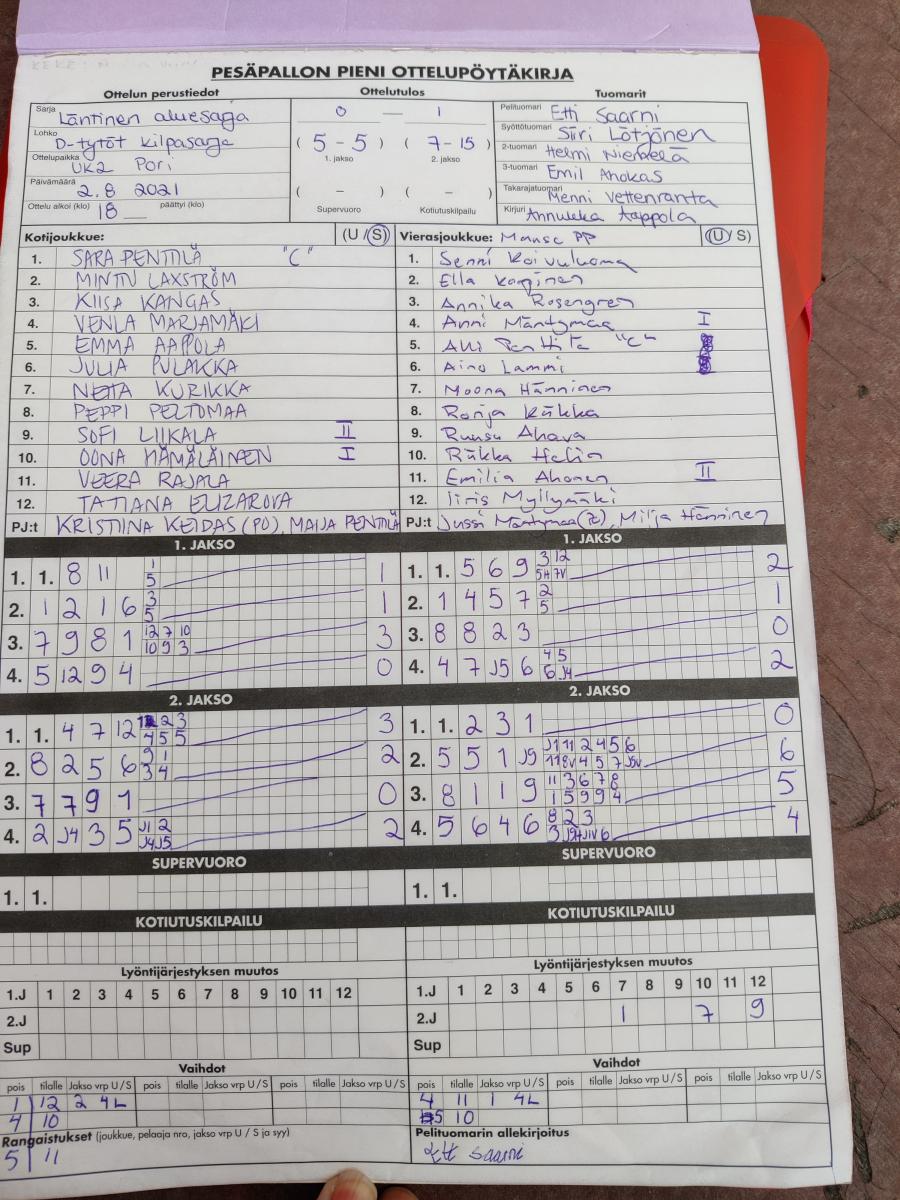 PESÄPALLON PIENI OTTELUPÖYTÄKIRJA
Ottelun perustiedot Ottelutulos Tuomarit
Sarja Läntinen aluesarja
Lohko D-tytöt kilpasarja
Ottelupaikka UK2 Pori
Päivämäärä 2.8 2021
Ottelu alkoi (klo) 18 päättyi (klo)
0 — 1
( 5 - 5 ) ( 7 - 15 )
1. jakso 2. jakso
( – ) ( – )
Supervuoro Kotiutuskilpailu
Pelituomari Etti Saarni
Syöttötuomari Siiri Lötjönen
2-tuomari Helmi Niemelä
3-tuomari Emil Ahokas
Takarajatuomari Menni Vettenranta
Kirjuri Annukka Aappola
Kotijoukkue: (U / S)
1. SARA PENTTILÄ "C"
2. MINTU LAXSTRÖM
3. KIISA KANGAS
4. VENLA MARJAMÄKI
5. EMMA AAPPOLA
6. JULIA PULAKKA
7. NETTA KURIKKA
8. PEPPI PELTOMAA
9. SOFI LIIKALA II
10. OONA HÄMÄLÄINEN I
11. VEERA RAJALA
12. TATIANA ELIZAROVA
PJ:t KRISTIINA KEIDAS (PJ), MAIJA PENTTILÄ
Vierasjoukkue: Manse PP (U / S)
1. Senni Koivuluoma
2. Ella
3. Annika Rosengren
4. Anni Mäntymaa I
5. Alli Penttilä "C"
6. Aino Lammi
7. Moona Hänninen
8. Ronja Kukka
9. Ruusu Ahava
10. Riikka Helin
11. Emilia Ahonen II
12. Iiris Myllymäki
PJ:t Jussi Mäntymaa, Milja Hänninen
1. JAKSO
1. 1. 8 11 1 5 1
2. 1 2 1 6 3 5 1
3. 7 9 8 1 12 7 10 10 9 3 3
4. 5 12 9 4 0
2. JAKSO
1. 1. 4 7 12 2 3 4 5 5 3
2. 8 2 5 6 9 1 3 4 2
3. 7 7 9 1 0
4. 2 J4 3 5 J1 2 J4 J5 2
SUPERVUORO
1. 1.
KOTIUTUSKILPAILU
1. JAKSO
1. 1. 5 6 9 3 12 5H 7V 2
2. 1 4 5 7 2 5 1
3. 8 8 2 3 0
4. 4 7 J5 6 4 5 6 J4 2
2. JAKSO
1. 1. 2 3 1 0
2. 5 5 1 J9 J1 11 2 4 5 6 11 8V 4 5 7 J5V 6
3. 8 1 1 9 11 3 6 7 8 1 5 9 9 4 5
4. 5 6 4 6 8 2 3 3 6 4
SUPERVUORO
1. 1.
KOTIUTUSKILPAILU
Lyöntijärjestyksen muutos
1.J 1 2 3 4 5 6 7 8 9 10 11 12
2.J
Sup
Vaihdot
pois tilalle Jakso vrp U / S pois tilalle Jakso vrp U / S pois tilalle Jakso vrp U / S
1 12 2 4L
4 10
Rangaistukset (joukkue, pelaaja nro, jakso vrp U / S ja syy)
5 11
Lyöntijärjestyksen muutos
1.J 1 2 3 4 5 6 7 8 9 10 11 12
2.J 1 7 9
Sup
Vaihdot
pois tilalle Jakso vrp U / S pois tilalle Jakso vrp U / S pois tilalle Jakso vrp U / S
4 11 1 4L
5 10
Pelituomarin allekirjoitus
Etti Saarni